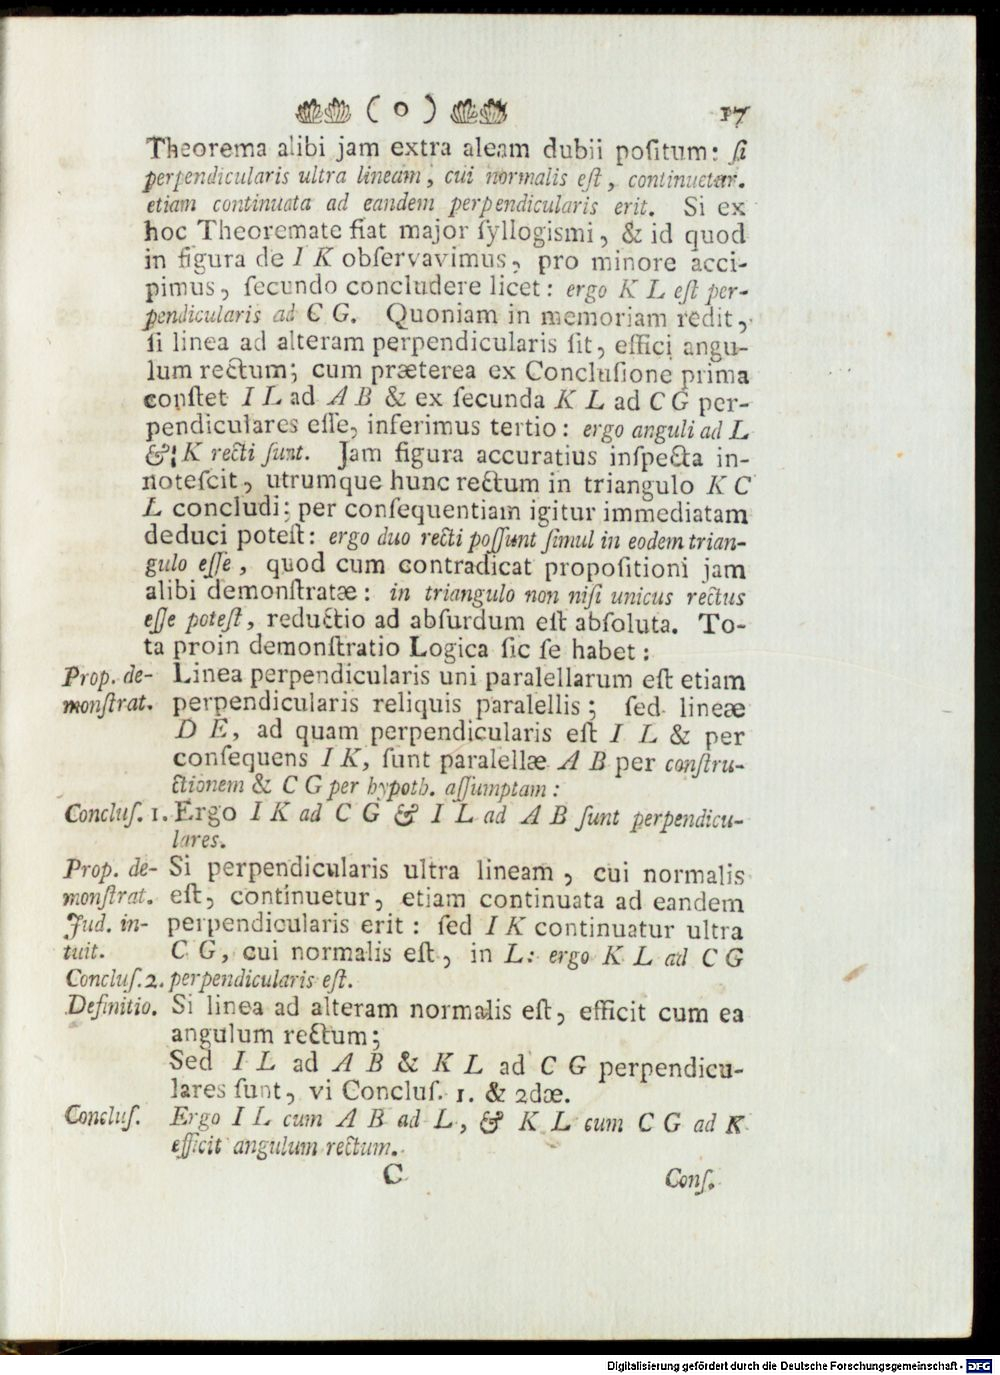 ( o ) 17
Theorema alibi jam extra aleam dubii poſitum: ſi
perpendicularis ultra lineam, cui normalis eſt, continuetur.
etiam continuata ad eandem perpendicularis erit. Si ex
hoc Theoremate fiat major ſyllogismi, & id quod
in figura de I K obſervavimus, pro minore acci-
pimus, ſecundo concludere licet: ergo K L eſt per-
pendicularis ad C G. Quoniam in memoriam redit,
ſi linea ad alteram perpendicularis ſit, effici angu-
lum rectum; cum præterea ex Concluſione prima
conſtet I L ad A B & ex ſecunda K L ad C G per-
pendiculares eſſe, inferimus tertio: ergo anguli ad L
& K recti ſunt. Jam figura accuratius inſpecta in-
noteſcit, utrumque hunc rectum in triangulo K C
L concludi; per conſequentiam igitur immediatam
deduci poteſt: ergo duo recti poſſunt ſimul in eodem trian-
gulo eſſe, quod cum contradicat propoſitioni jam
alibi demonſtratæ: in triangulo non niſi unicus rectus
eſſe poteſt, reductio ad abſurdum eſt abſoluta. To-
ta proin demonſtratio Logica ſic ſe habet:
Prop. de- Linea perpendicularis uni paralellarum eſt etiam
monſtrat. perpendicularis reliquis paralellis; ſed lineæ
D E, ad quam perpendicularis eſt I L & per
conſequens I K, ſunt paralellæ A B per conſtru-
ctionem & C G per hypoth. aſſumptam:
Concluſ. 1. Ergo I K ad C G & I L ad A B ſunt perpendicu-
lares.
Prop. de- Si perpendicularis ultra lineam, cui normalis
monſtrat. eſt, continuetur, etiam continuata ad eandem
Jud. in- perpendicularis erit: ſed I K continuatur ultra
tuit. C G, cui normalis eſt, in L: ergo K L ad C G
Concluſ. 2. perpendicularis eſt.
Definitio. Si linea ad alteram normalis eſt, efficit cum ea
angulum rectum;
Sed I L ad A B & K L ad C G perpendicu-
lares ſunt, vi Concluſ. 1. & 2dæ.
Concluſ. Ergo I L cum A B ad L, & K L cum C G ad K
efficit angulum rectum.
C Conſ.
Digitalisierung gefördert durch die Deutsche Forschungsgemeinschaft - DFG